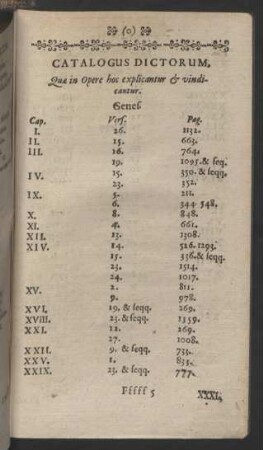 (o)
CATALOGUS DICTORUM,
Quæ in Opere hoc explicantur & vindi-
cantur.
Genes.
Cap. Vers. Pag.
I. 26. 1132.
II. 15. 663.
III. 16. 764.
19. 1095. & seq.
IV. 15. 350. & seqq.
23. 352.
IX. 5. 211.
6. 544. 548.
X. 8. 848.
XI. 4. 661.
XII. 13. 1308.
XIV. 14. 526. 1293.
15. 536. & seqq.
23. 1514.
24. 1017.
XV. 2. 811.
9. 978.
XVI. 19. & seqq. 269.
XVIII. 23. & seqq. 1359.
XXI. 12. 269.
27. 1008.
XXII. 9. & seqq. 735.
XXV. 1. 835.
XXIX. 23. & seqq. 777.
Fffff 5 XXXI.